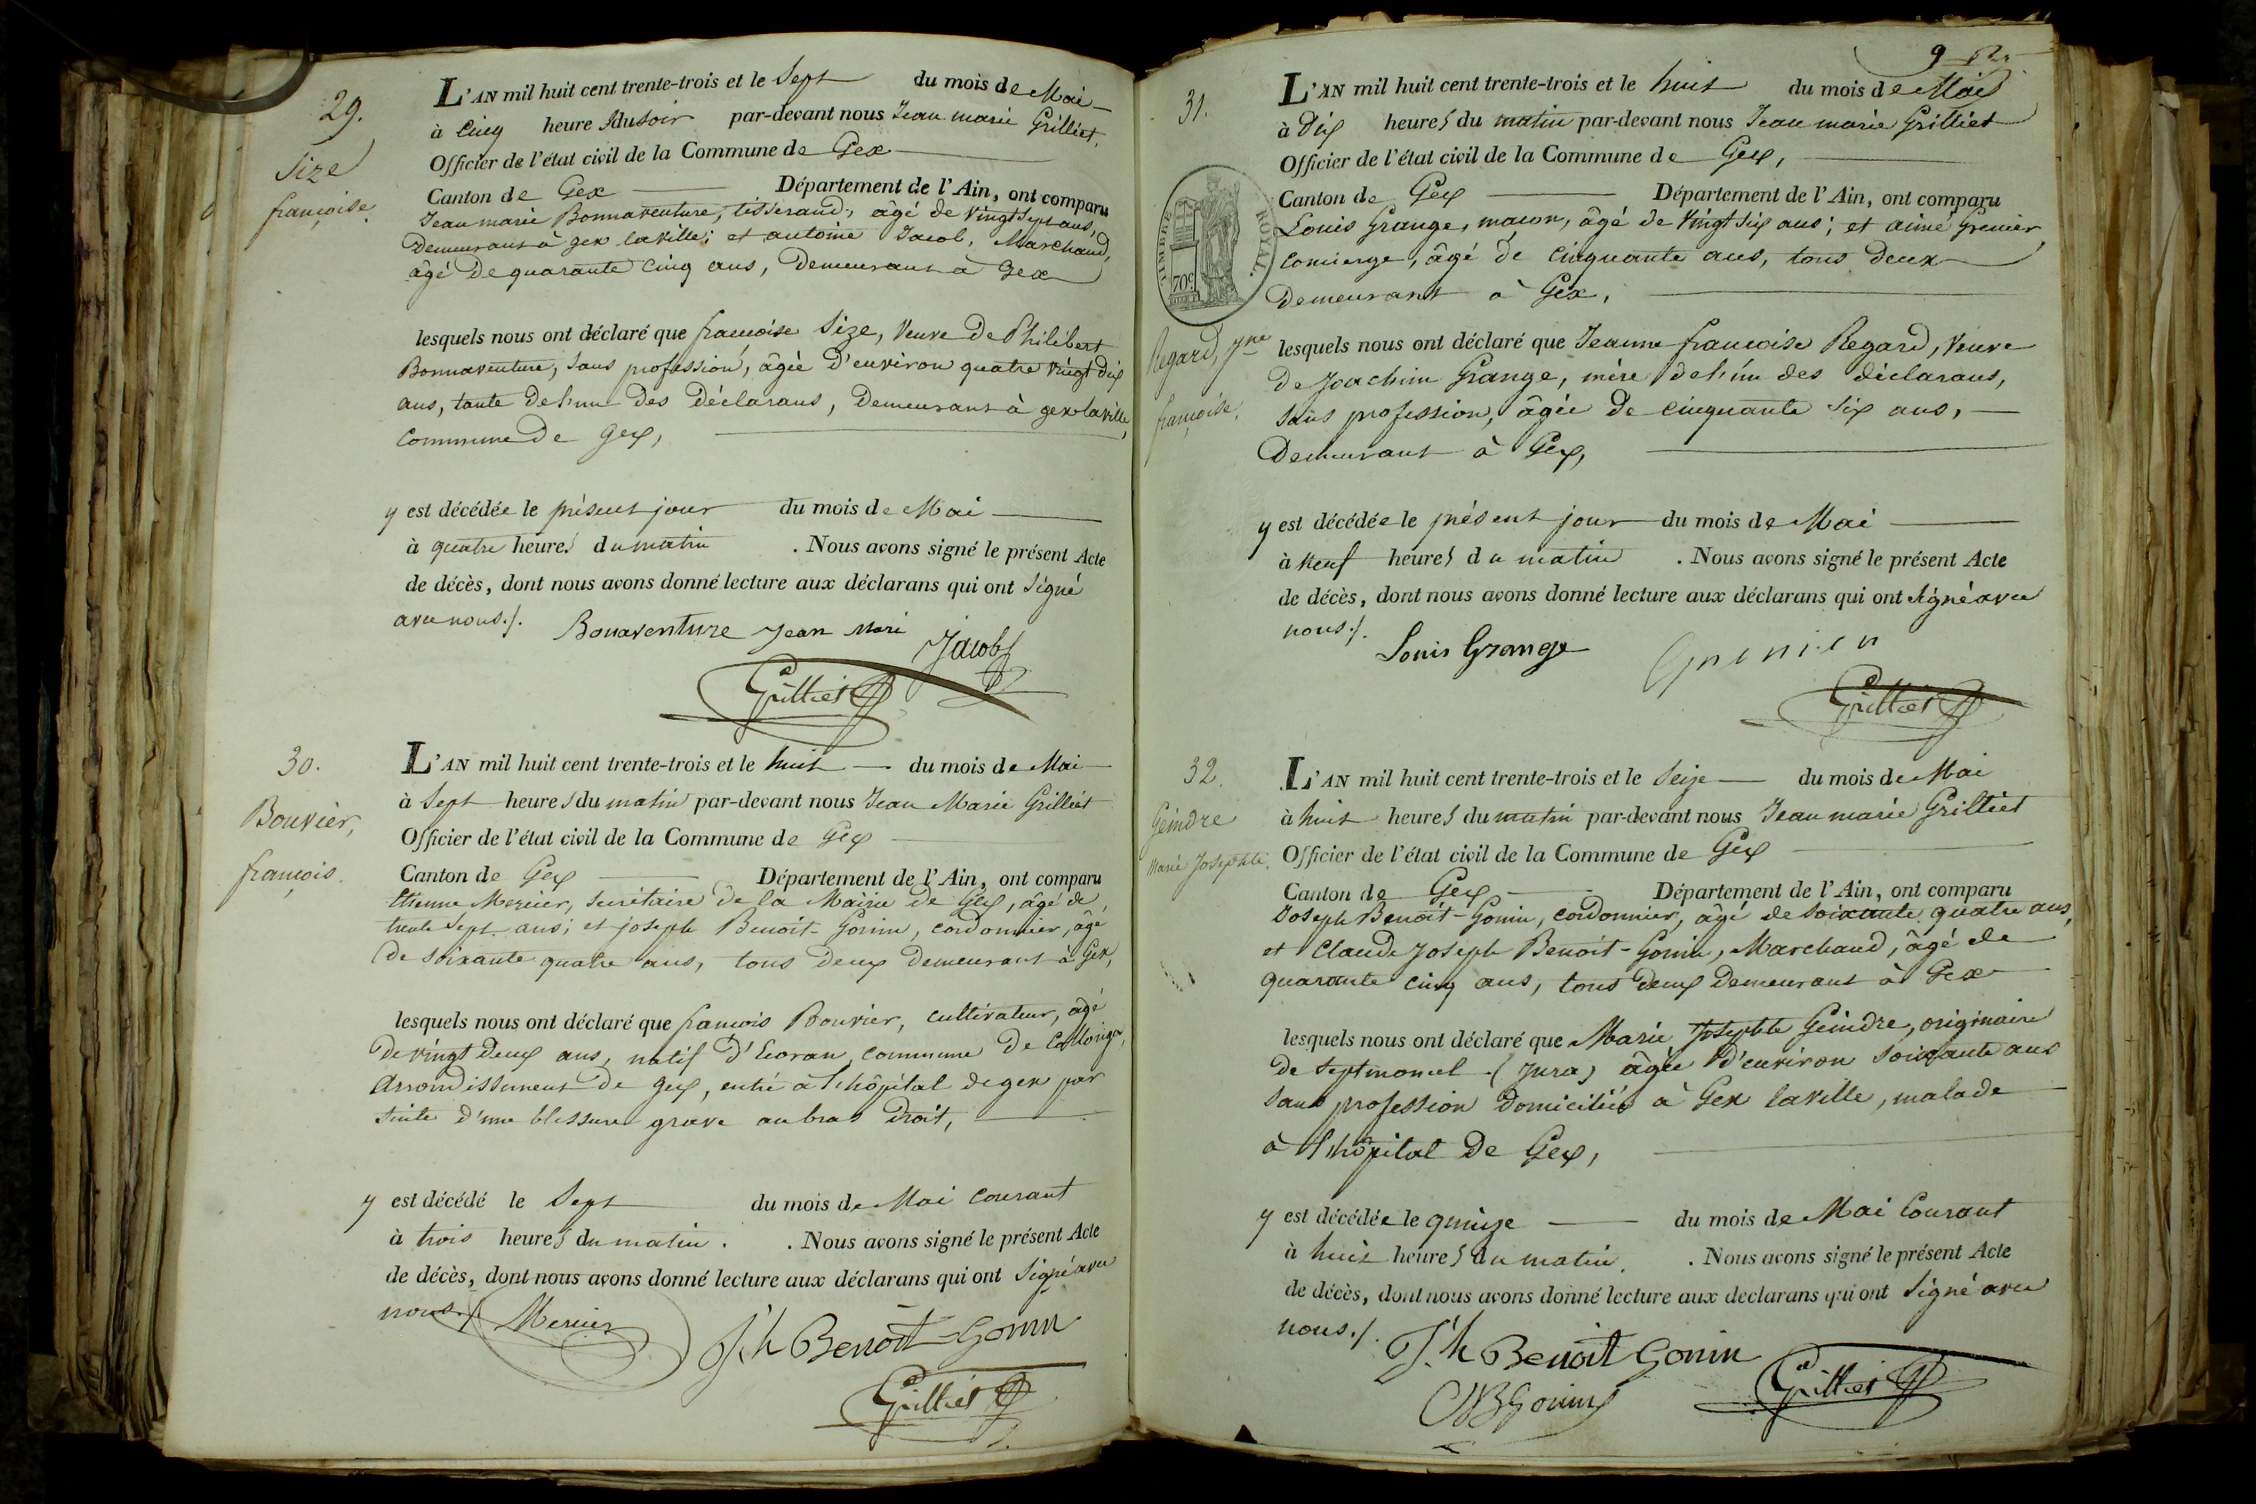 29.
Size
françoise.
L'AN mil huit cent trente-trois et le Sept du mois de Mai
à Cinq heures du Soir par-devant nous Jean marie Grilliet.
Officier de l'état civil de la Commune de Gex
Canton de Gex Département de l'Ain, ont comparu
Jean marie Bonnaventure, tisserand, âgé de vingt sept ans,
demeurant à gex laville; et antoine Jacob, Marchand,
âgé de quarante cinq ans, demeurant à Gex
lesquels nous ont déclaré que françoise Size, veuve de Philibert
Bonnaventure, sans profession, âgée d'environ quatre vingt dix
ans, tante de l'un des déclarans, demeurant à gex laville,
commune de gex,
y est décédée le présent jour du mois de Mai
à quatre heures du matin . Nous avons signé le présent Acte
de décès, dont nous avons donné lecture aux déclarans qui ont Signé
avec nous./.
Bonaventure Jean Mari Jacob
Grilliet
30.
Bouvier,
françois.
L'AN mil huit cent trente-trois et le huit du mois de Mai
à Sept heures du matin par-devant nous Jean Marie Grilliet
Officier de l'état civil de la Commune de Gex
Canton de Gex Département de l'Ain, ont comparu
Etienne Mercier, Secrétaire de la Mairie de Gex, âgé de
trente Sept ans; et joseph Benoit-Gonin, cordonnier, âgé
de soixante quatre ans, tous deux demeurant à Gex,
lesquels nous ont déclaré que françois Bouvier, cultivateur, âgé
de vingt deux ans, natif d'Ecoran, commune de Collonges,
arrondissement de gex, entré à l'hôpital de gex par
suite d'une blessure grave au bras Droit,
y est décédé le Sept du mois de Mai courant
à trois heures du matin. . Nous avons signé le présent Acte
de décès, dont nous avons donné lecture aux déclarans qui ont Signé avec
nous./.
Mercier J.h Benoit-Gonin
Grilliet
9
31.
TIMBRE ROYAL.
70c
Regard, Jne
françoise.
L'AN mil huit cent trente-trois et le huit du mois de Mai
à Dix heures du matin par-devant nous Jean marie Grilliet
Officier de l'état civil de la Commune de Gex,
Canton de Gex Département de l'Ain, ont comparu
Louis Grange, maçon, âgé de vingt six ans; et aimé Grenier,
concierge, âgé de cinquante ans, tous deux
demeurant à Gex,
lesquels nous ont déclaré que Jeanne françoise Regard, veuve
de Joachim Grange, mère de l'un des déclarans,
sans profession, âgée de cinquante six ans,
demeurant à Gex,
y est décédée le présent jour du mois de Mai
à Neuf heures du matin . Nous avons signé le présent Acte
de décès, dont nous avons donné lecture aux déclarans qui ont signé avec
nous./.
Louis Grange Grenier
Grilliet
32.
Geindre
Marie Josephte.
L'AN mil huit cent trente-trois et le Seize du mois de Mai
à huit heures du matin par-devant nous Jean marie Grilliet
Officier de l'état civil de la Commune de Gex
Canton de Gex, Département de l'Ain, ont comparu
Joseph Benoît-Gonin, cordonnier, âgé de soixante quatre ans,
et Claude Joseph Benoit-Gonin, Marchand, âgé de
quarante cinq ans, tous deux demeurant à Gex
lesquels nous ont déclaré que Marie Josephte Geindre, originaire
de Septmoncel (Jura) âgée d'environ soixante ans
sans profession domiciliée à Gex laville, malade
à l'hôpital de Gex,
y est décédée le quinze du mois de Mai Courant
à huit heures du matin. . Nous avons signé le présent Acte
de décès, dont nous avons donné lecture aux déclarans qui ont Signé avec
nous./.
J.h Benoit Gonin Grilliet
CJBGonin